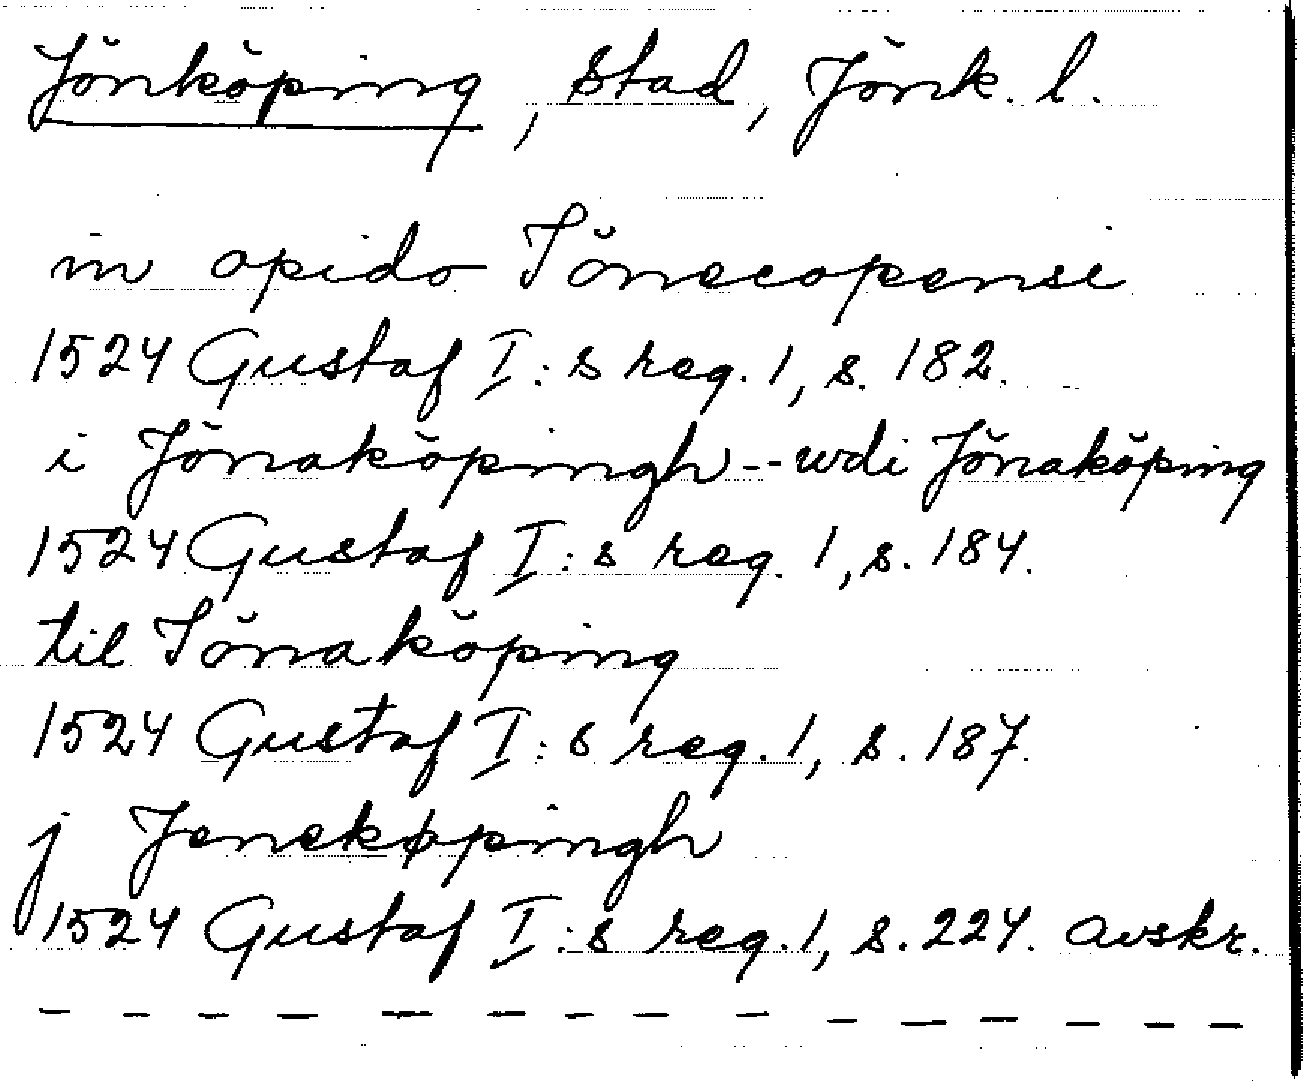 Jönköping, stad, Jönk. l.
in opido Iönecopensi
1524 Gustaf I:s reg. 1, s. 182.
i Jönaköpingh -- wdi Jönaköping
1524 Gustaf I:s reg. 1, s. 184.
til Iönaköping
1524 Gustaf I:s reg. 1, s. 187.
j Jenekøpingh
1524 Gustaf I:s reg. 1, s. 224. avskr.
— — — — — — — — — — — — — — —